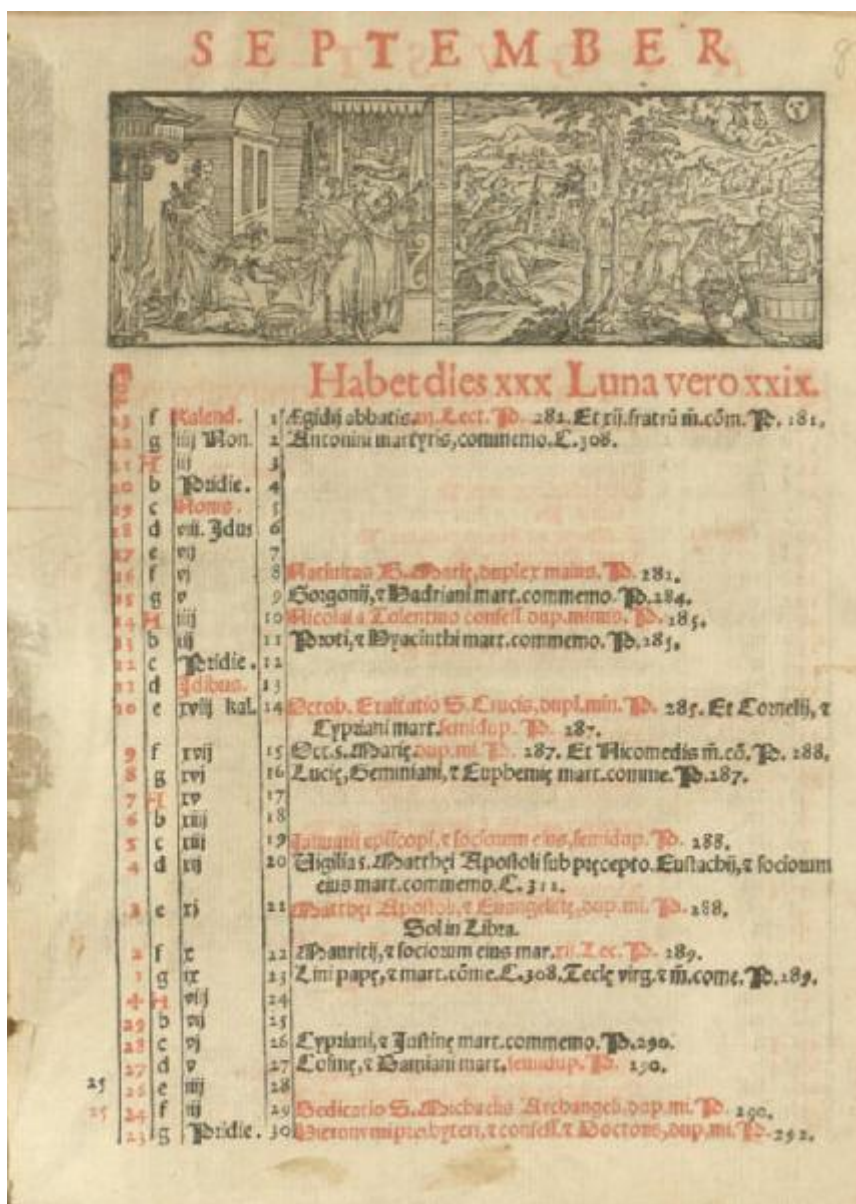 SEPTEMBER
8
Habet dies xxx Luna vero xxix.
23 f Kalend. 1 Ægidij abbatis. iij. Lect. P. 281. Et xij. fratrũ m̃. cõm. P. 281.
22 g iiij Non. 2 Antonini martyris, commemo. C. 308.
21 H iij 3
20 b Pridie. 4
19 c Nonis. 5
18 d viii. Idus 6
17 e vij 7
16 f vj 8 Nativitas B. Marię, duplex maius. P. 281.
15 g v 9 Gorgonij, ⁊ Hadriani mart. commemo. P. 284.
14 H iiij 10 Nicolai a Tolentino confess. dup. minus. P. 285.
13 b iij 11 Proti, ⁊ Hyacinthi mart. commemo. P. 285.
12 c Pridie. 12
11 d Idibus. 13
10 e xviij kal. 14 Octob. Exaltatio S. Crucis, dupl. min. P. 285. Et Cornelij, ⁊
Cypriani mart. semidup. P. 287.
9 f xvij 15 Oct. s. Marię. dup. mi. P. 287. Et Nicomedis m̃. cõ. P. 288.
8 g xvj 16 Lucię, Geminiani, ⁊ Euphemię mart. comme. P. 287.
7 H xv 17
6 b xiiij 18
5 c xiij 19 Ianuarii episcopi, ⁊ sociorum eius, semidup. P. 288.
4 d xij 20 Vigilia s. Matthęi Apostoli sub pręcepto. Eustachij, ⁊ sociorum
eius mart. commemo. C. 311.
3 e xj 21 Matthęi Apostoli, ⁊ Euangelistę, dup. mi. P. 288.
Sol in Libra.
2 f x 22 Mauritij, ⁊ sociorum eius mar. iij. Lec. P. 289.
1 g ix 23 Lini papę, ⁊ mart. cõme. C. 308. Teclę virg. ⁊ m̃. come. P. 289.
H viij 24
29 b vij 25
28 c vj 26 Cypriani, ⁊ Iustinę mart. commemo. P. 290.
27 d v 27 Cosmę, ⁊ Damiani mart. semidup. P. 290.
25 26 e iiij 28
25 24 f iij 29 Dedicatio S. Michaelis Archangeli. dup. mi. P. 290.
23 g Pridie. 30 Hieronymi presbyteri, ⁊ confess. ⁊ Doctoris, dup. mi. P. 292.